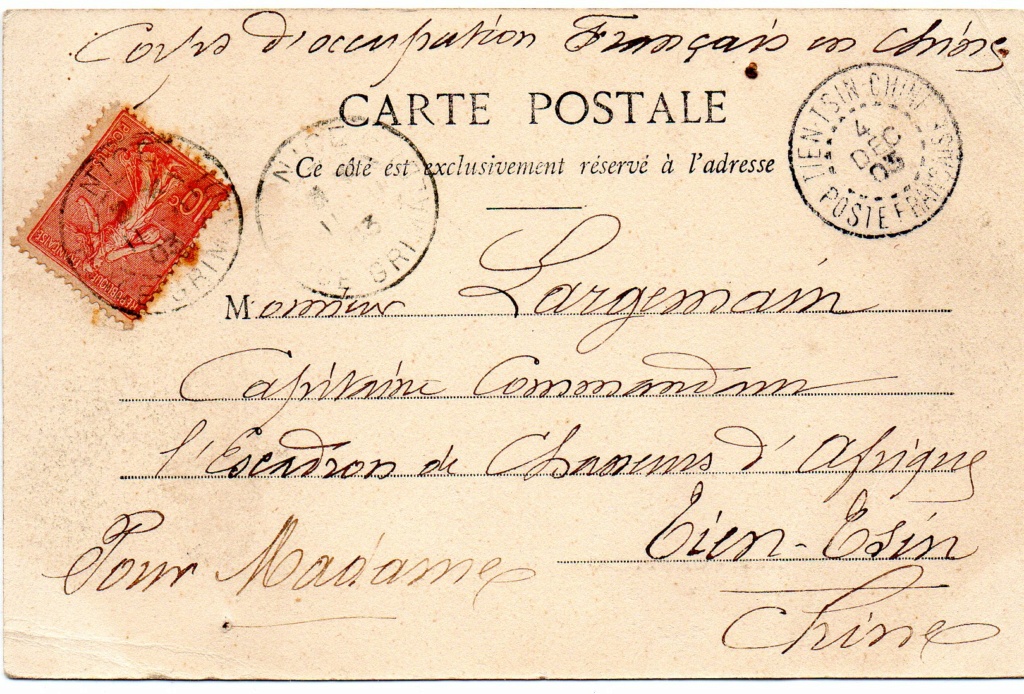 Corps d'occupation Français en Chine
CARTE POSTALE
Ce côté est exclusivement réservé à l'adresse
TIEN TSIN CHINE
4
DEC
03
POSTE FRANÇAISE
10c
NICE
GRIM
NICE
GRI
Monsieur Largemain
Capitaine Commandant
l'Escadron de Chasseurs d'Afrique
Tien-Tsin
Chine
Pour Madame